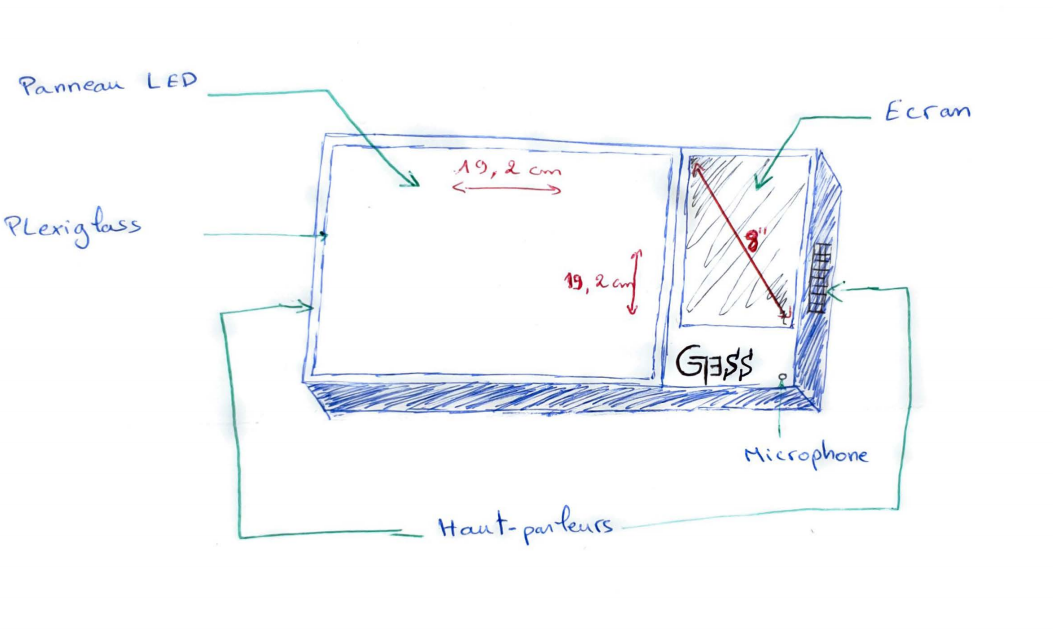 Panneau LED
Ecran
19,2 cm
PLexiglass
8"
19,2 cm
Microphone
Haut-parleurs